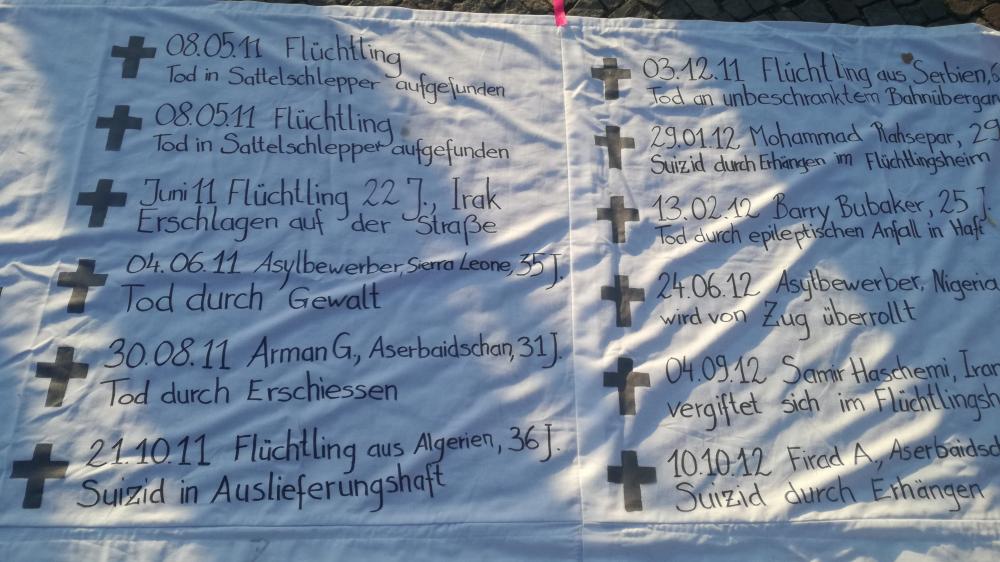 08.05.11 Flüchtling
Tod in Sattelschlepper aufgefunden
08.05.11 Flüchtling
Tod in Sattelschlepper aufgefunden
Juni 11 Flüchtling 22 J., Irak
Erschlagen auf der Straße
04.06.11 Asylbewerber, Sierra Leone, 35 J.
Tod durch Gewalt
30.08.11 Arman G., Aserbaidschan, 31 J.
Tod durch Erschiessen
21.10.11 Flüchtling aus Algerien, 36 J.
Suizid in Auslieferungshaft
03.12.11 Flüchtling aus Serbien,
Tod an unbeschranktem Bahnübergan
29.01.12 Mohammad Rahsepar, 29
Suizid durch Erhängen im Flüchtlingsheim
13.02.12 Barry Bubaker, 25 J.
Tod durch epileptischen Anfall in Haft
24.06.12 Asylbewerber, Nigeria
wird von Zug überrollt
04.09.12 Samir Haschemi, Iran
vergiftet sich im Flüchtlingsh
10.10.12 Firad A., Aserbaidsc
Suizid durch Erhängen